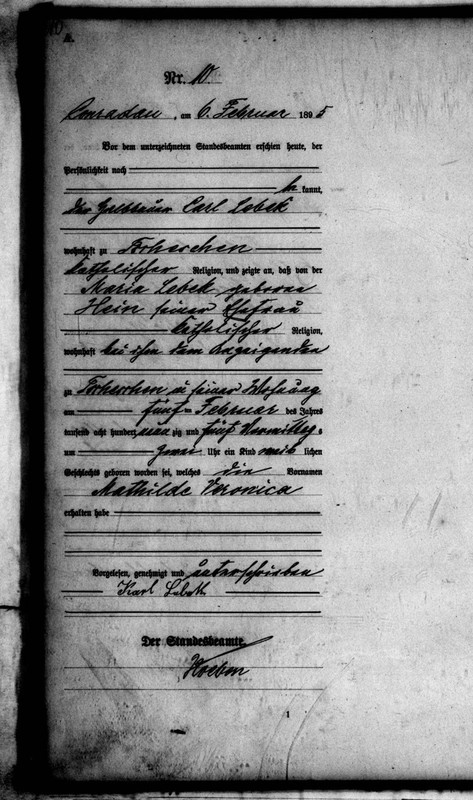 A.
Nr. 10.
Conradau, am 6. Februar 1895
Vor dem unterzeichneten Standesbeamten erschien heute, der
Persönlichkeit nach
be kannt,
der Halbbauer Carl Lebek
wohnhaft zu
katholischer Religion, und zeigte an, daß von der
Maria Lebek geborne
Hein seiner Ehefrau
katholischer Religion,
wohnhaft bei ihm dem Anzeigenden
zu in seiner Wohnung
am fünften Februar des Jahres
tausend acht hundert neun zig und fünf Vormittags
um zwei Uhr ein Kind weib lichen
Geschlechts geboren worden sei, welches die Vornamen
Mathilde Veronica
erhalten habe
Vorgelesen, genehmigt und unterschrieben
Karl Lebek
Der Standesbeamte.
1